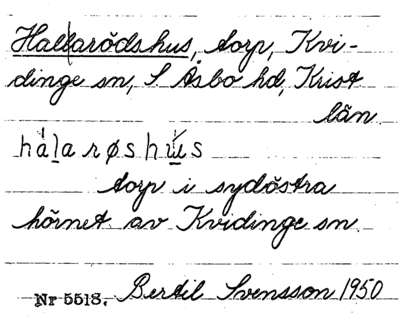 Hallarödshus, torp, Kvi-
dinge sn, S Åsbo hd, Krist
län.
hàlarøshus
torp i sydöstra
hörnet av Kvidinge sn.
Nr 5518. Bertil Svensson 1950